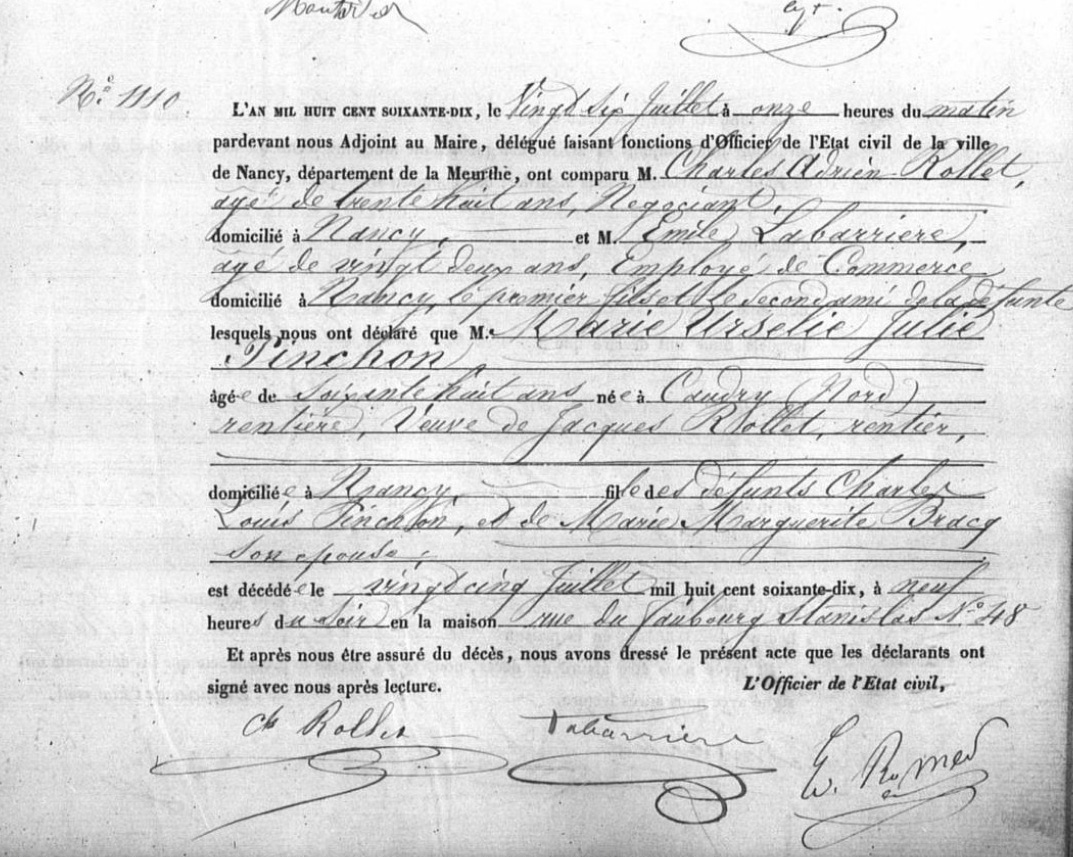 N.° 1110
L'AN MIL HUIT CENT SOIXANTE-DIX, le Vingt six Juillet à onze heures du matin
pardevant nous Adjoint au Maire, délégué faisant fonctions d'Officier de l'Etat civil de la ville
de Nancy, département de la Meurthe, ont comparu M. Charles Adrien Rollet,
agé de trente huit ans, Négociant,
domicilié à Nancy, et M. Emile Labarriere,
agé de vingt deux ans, Employé de Commerce
domicilié à Nancy, le premier fils et le second ami de la défunte
lesquels nous ont déclaré que M.e Marie Urselie Julie
Pinchon
âgée de Soixante huit ans née à Caudry (Nord)
rentière, Veuve de Jacques Rollet, rentier,
domiciliée à Nancy, fille des défunts Charles
Louis Pinchon, et de Marie Marguerite Bracq
son épouse;
est décédée le vingt cinq Juillet mil huit cent soixante-dix, à neuf
heures du Soir en la maison rue du faubourg Stanislas N.° 48
Et après nous être assuré du décès, nous avons dressé le présent acte que les déclarants ont
signé avec nous après lecture. L'Officier de l'Etat civil,
ch Rollet Labarriere